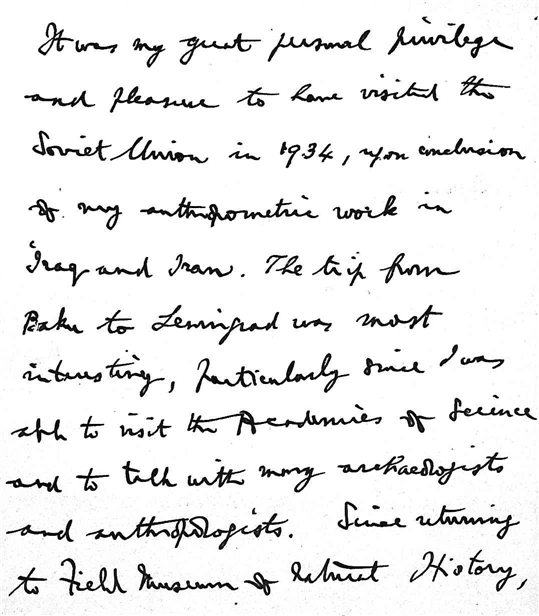 It was my great personal privilege
and pleasure to have visited the
Soviet Union in 1934, upon conclusion
of my anthropometric work in
Iraq and Iran. The trip from
Baku to Leningrad was most
interesting, particularly since I was
able to visit the Academies of Science
and to talk with many archaeologists
and anthropologists. Since returning
to Field Museum of Natural History,